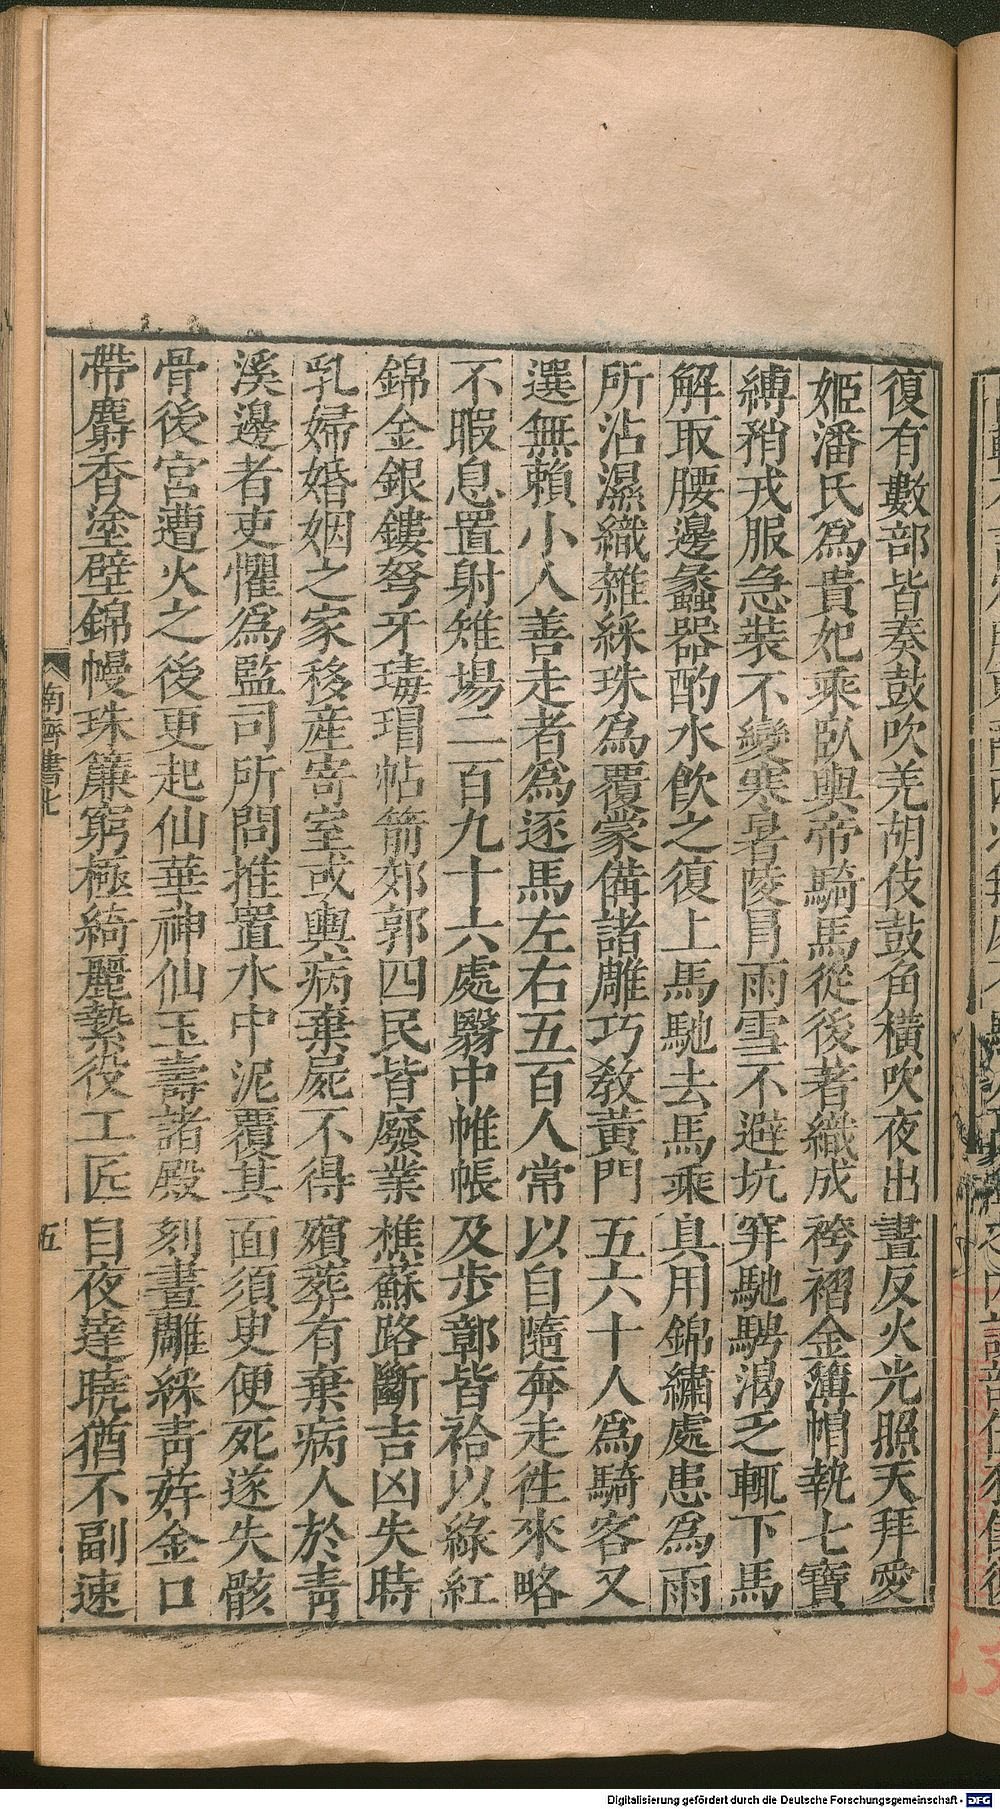 復有數部皆奏鼓吹羌胡伎鼓角橫吹夜出晝反火光照天拜愛
姬潘氏爲貴妃乘臥輿帝騎馬從後著織成袴褶金簿帽執七寶
縛矟戎服急裝不變寒暑陵冒雨雪不避坑穽馳騁渴乏輒下馬
解取腰邊蠡器酌水飮之復上馬馳去馬乘具用錦繡處患爲雨
所沾濕織雜綵珠爲覆蒙備諸雕巧敎黃門五六十人爲騎客又
選無賴小人善走者爲逐馬左右五百人常以自隨奔走徃來略
不暇息置射雉場二百九十六處翳中帷帳及步鄣皆袷以綠紅
錦金銀鏤弩牙瑇瑁帖箭郊郭四民皆廢業樵蘇路斷吉凶失時
乳婦婚姻之家移產寄室或輿病棄屍不得殯葬有棄病人於靑
溪邊者吏懼爲監司所問推置水中泥覆其面須臾便死遂失骸
骨後宮遭火之後更起仙華神仙玉壽諸殿刻畫雕綵靑𦺇金口
帶麝香塗壁錦幔珠簾窮極綺麗縶役工匠自夜達曉猶不副速
南齊書七
五
Digitalisierung gefördert durch die Deutsche Forschungsgemeinschaft - DFG